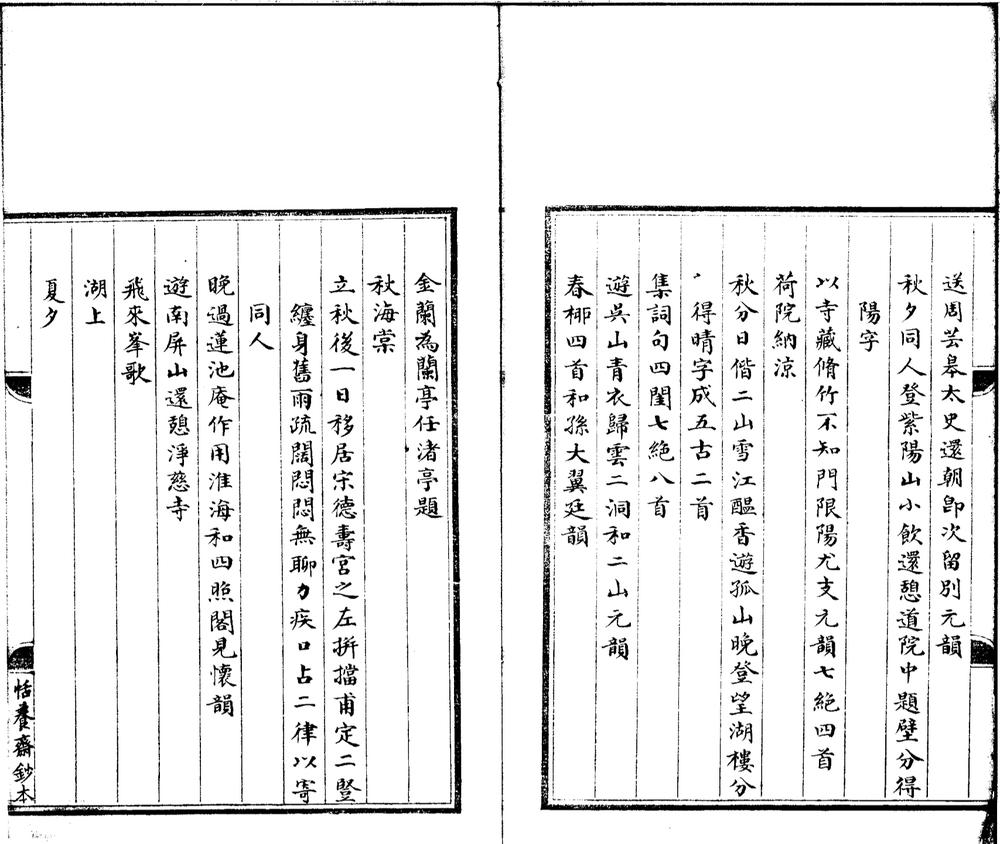 送周芸皋太史還朝卽次留別元韻
秋夕同人登紫陽山小飲還憩道院中題壁分得
陽字
以寺藏脩竹不知門限陽尤支元韻七絕四首
荷院納涼
秋分日偕二山雪江醞香遊孤山晚登望湖樓分
得晴字成五古二首
集詞句四闋七絕八首
遊吳山青衣歸雲二洞和二山元韻
春柳四首和孫大翼廷韻
金蘭為蘭亭任渚亭題
秋海棠
立秋後一日移居宋德壽宮之左拚擋甫定二豎
纏身舊雨疏闊悶悶無聊力疾口占二律以寄
同人
晚過蓮池庵作用淮海和四照閣見懷韻
遊南屏山還憩淨慈寺
飛來峯歌
湖上
夏夕
恬養齋鈔本